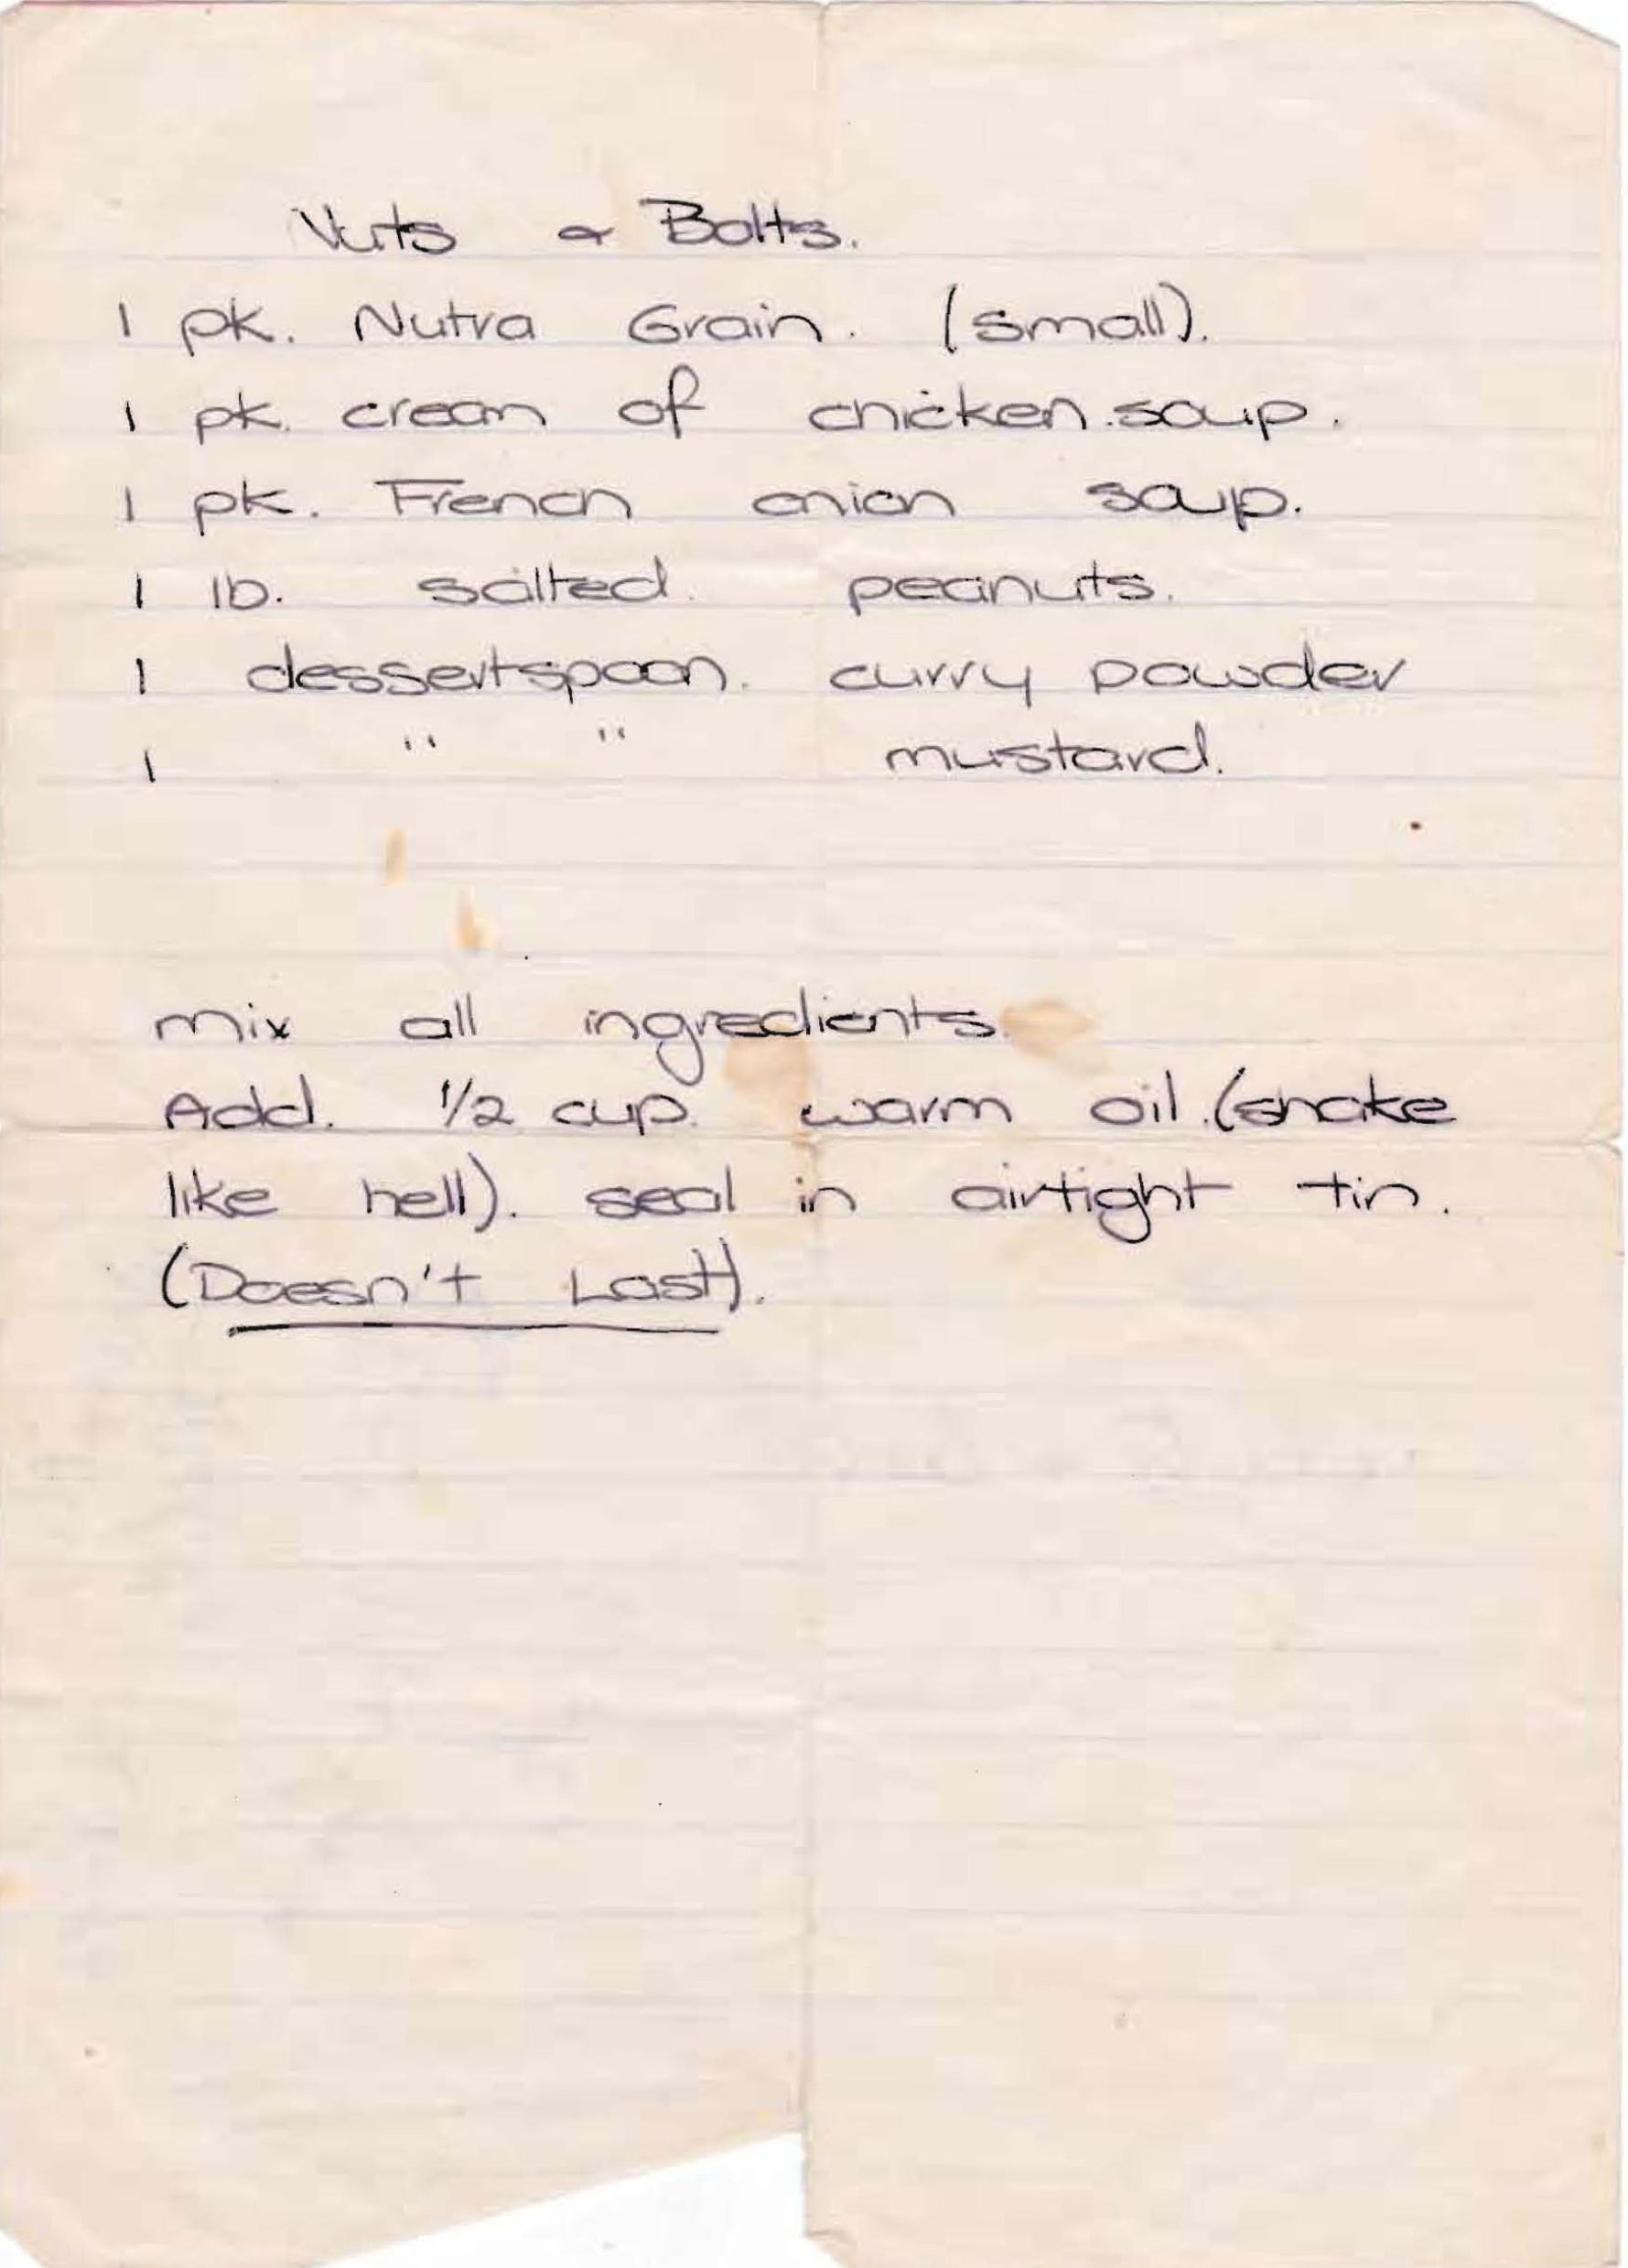 Nuts & Bolts.
1 pk. Nutra Grain. (small).
1 pk. cream of chicken soup.
1 pk. French onion soup.
1 lb. salted peanuts.
1 dessertspoon. curry powder
1 " " mustard.
mix all ingredients.
Add. 1/2 cup. warm oil. (shake
like hell). seal in airtight tin.
(Doesn't Last).